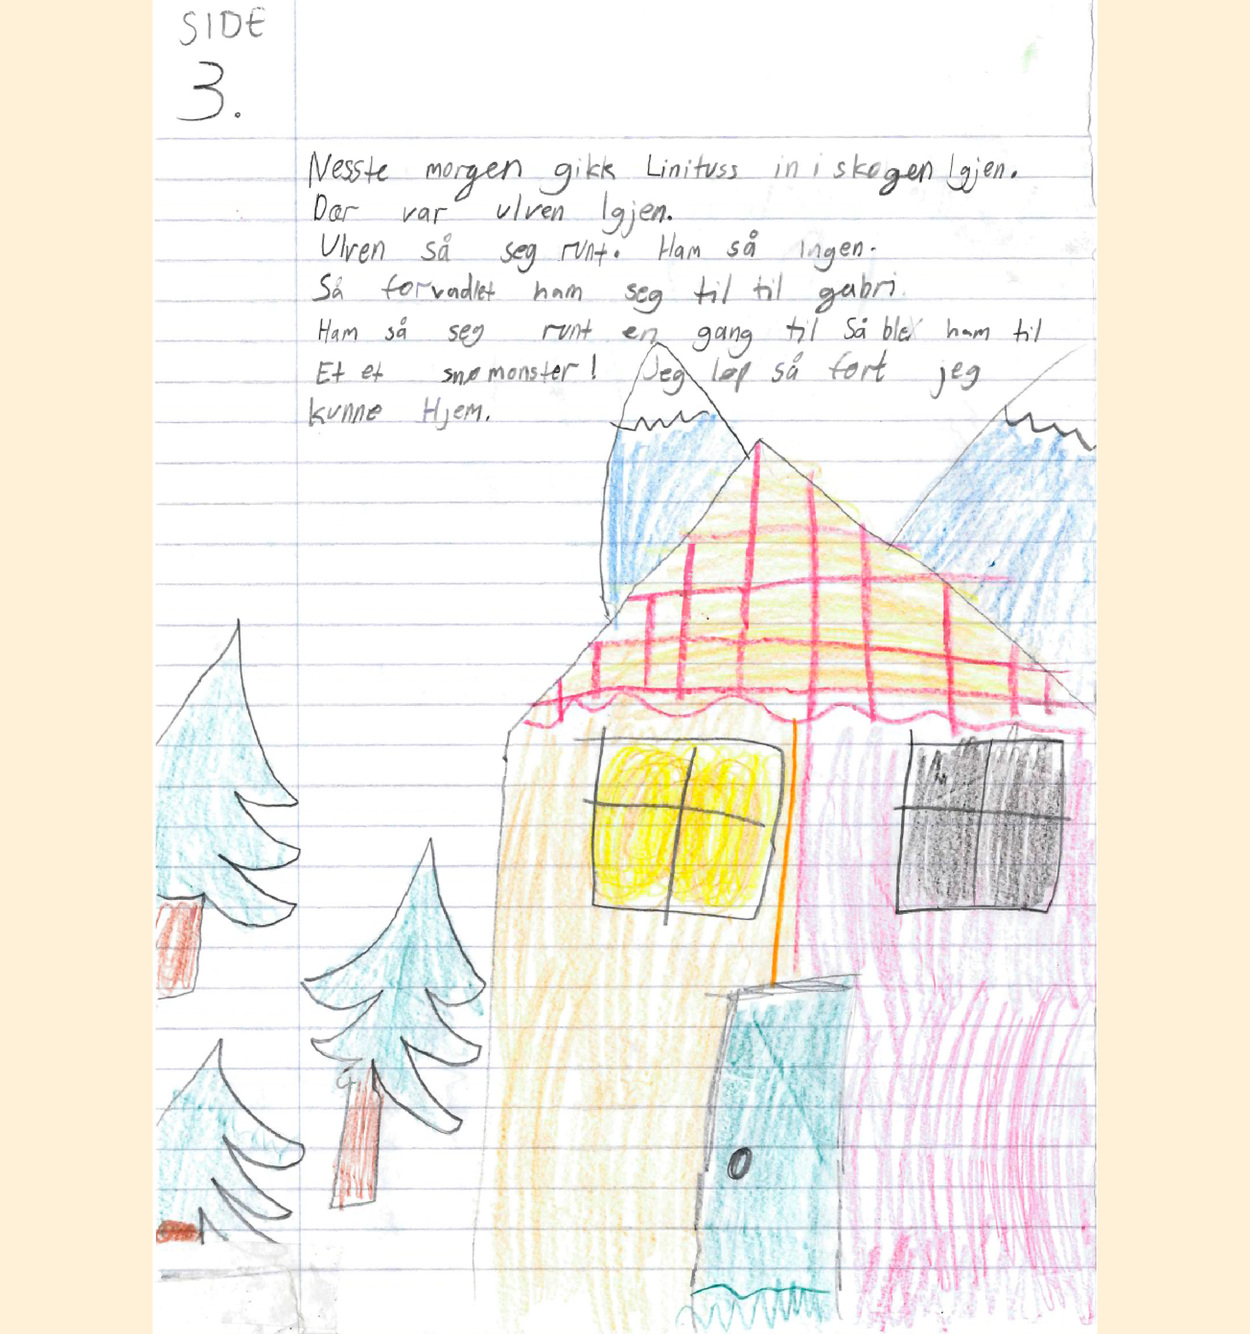 SIDE
3.
Nesste morgen gikk Linituss in i skogen Igjen.
Dær var ulven Igjen.
Ulven så seg runt. Ham så Ingen.
Så forvadlet ham seg til til gabri.
Ham så seg runt en gang til Så ble ham til
Et et snømonster! Jeg løp så fort jeg
kunne Hjem.